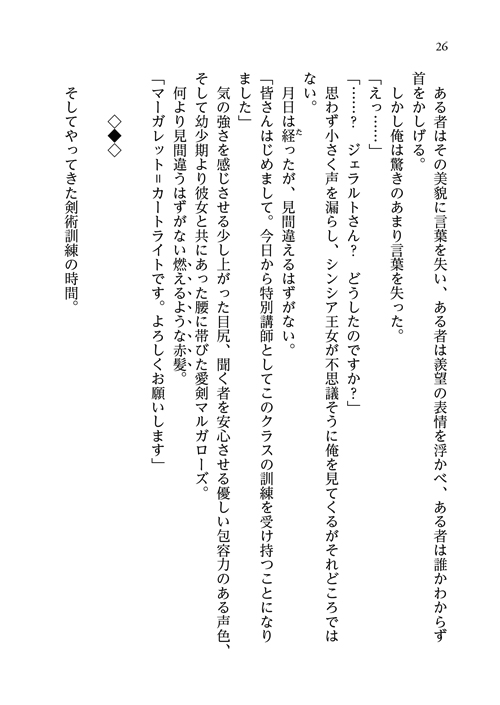 26
ある者はその美貌に言葉を失い、ある者は羨望の表情を浮かべ、ある者は誰かわからず
首をかしげる。
しかし俺は驚きのあまり言葉を失った。
「えっ……」
「……？　ジェラルトさん？　どうしたのですか？」
思わず小さく声を漏らし、シンシア王女が不思議そうに俺を見てくるがそれどころでは
ない。
月日は経ったが、見間違えるはずがない。
「皆さんはじめまして。今日から特別講師としてこのクラスの訓練を受け持つことになり
ました」
気の強さを感じさせる少し上がった目尻、聞く者を安心させる優しい包容力のある声色、
そして幼少期より彼女と共にあった腰に帯びた愛剣マルガローズ。
何より見間違うはずがない燃えるような赤髪。
「マーガレット＝カートライトです。よろしくお願いします」
◇◆◇
そしてやってきた剣術訓練の時間。